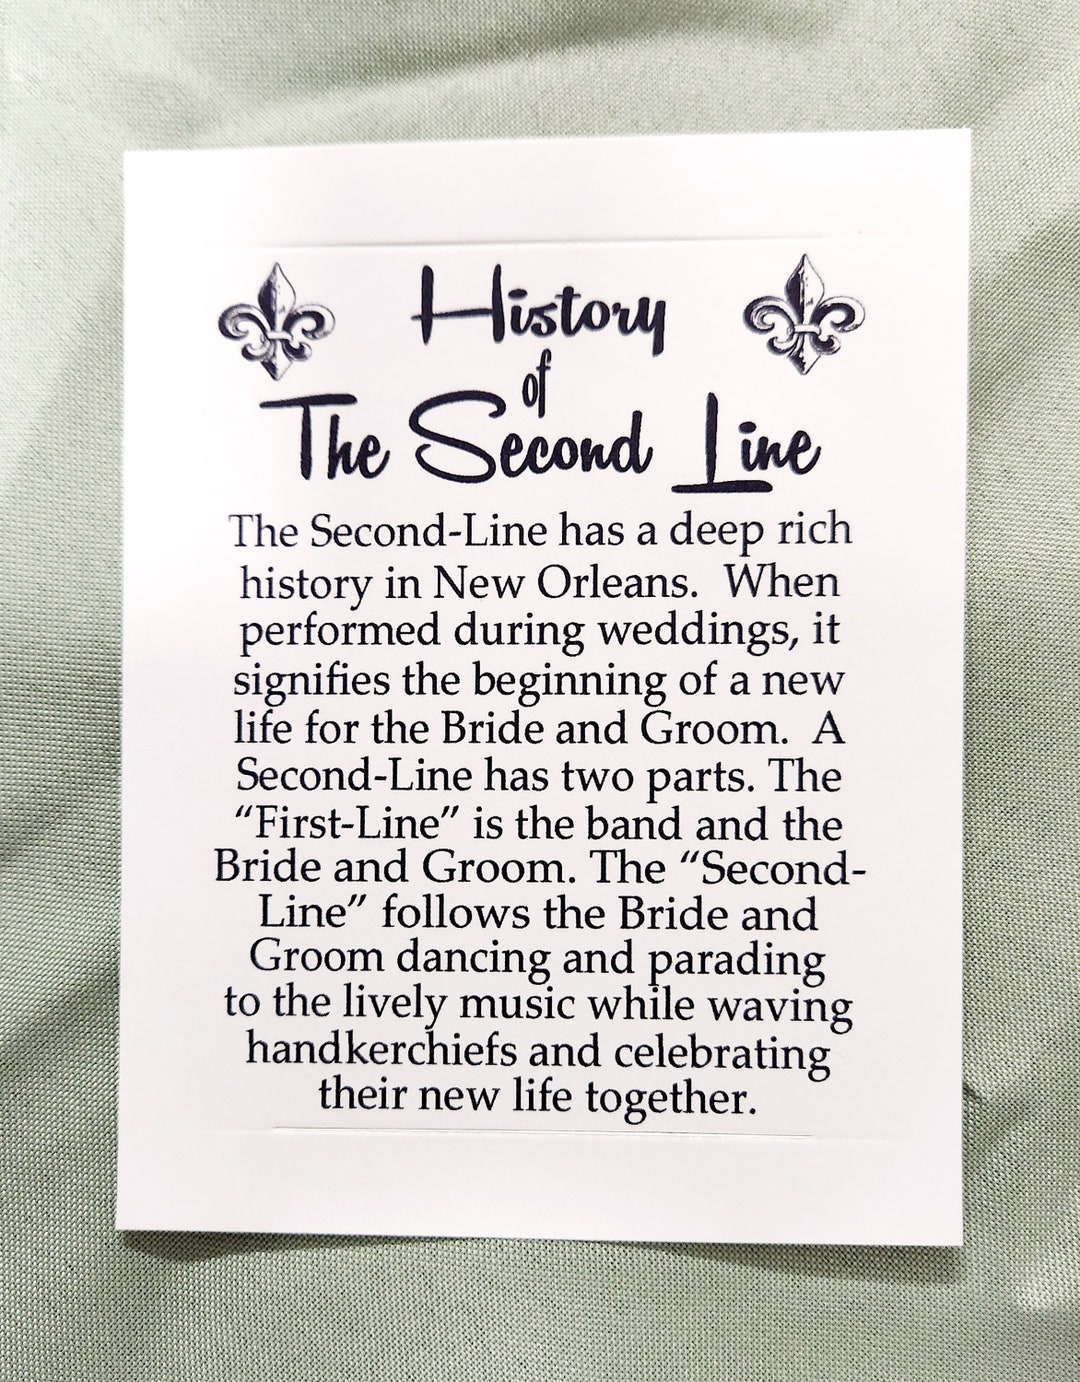 History
of
The Second Line
The Second-Line has a deep rich
history in New Orleans.  When
performed during weddings, it
signifies the beginning of a new
life for the Bride and Groom.  A
Second-Line has two parts. The
“First-Line” is the band and the
Bride and Groom. The “Second-
Line” follows the Bride and
Groom dancing and parading
to the lively music while waving
handkerchiefs and celebrating
their new life together.